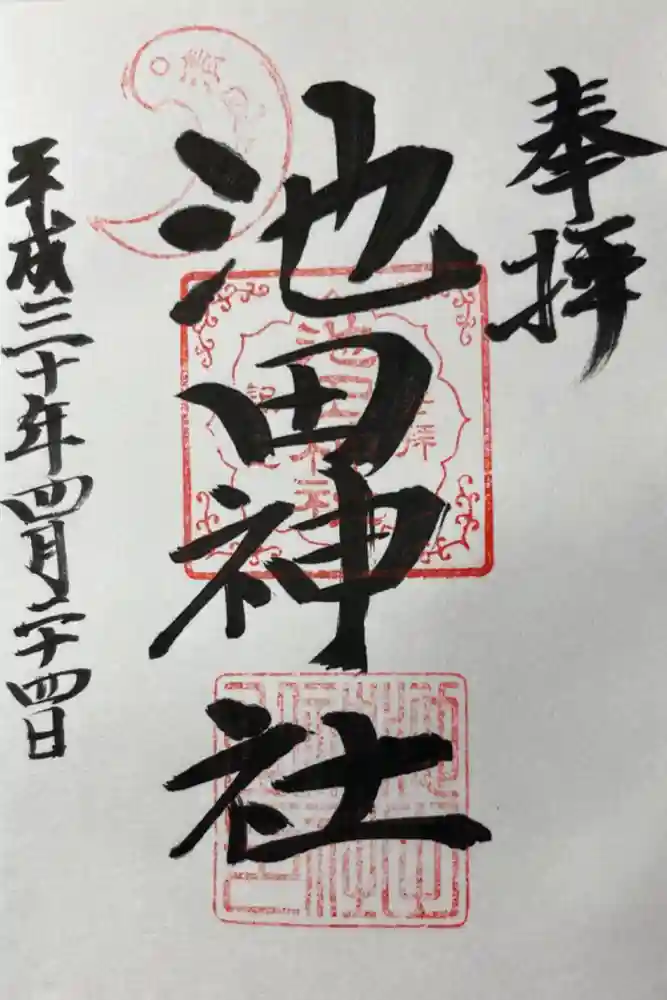 奉拝
池田神社
平成三十年四月二十四日